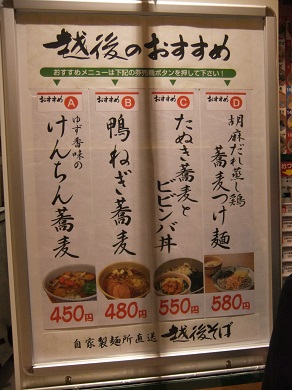 越後のおすすめ
おすすめメニューは下記の券売機ボタンを押して下さい!
おすすめ A
ゆず香味の
けんちん蕎麦
450円
おすすめ B
鴨ねぎ蕎麦
480円
おすすめ C
たぬき蕎麦と
ビビンバ丼
550円
おすすめ D
胡麻だれ蒸し鶏
蕎麦つけ麺
580円
自家製麺所直送 越後そば